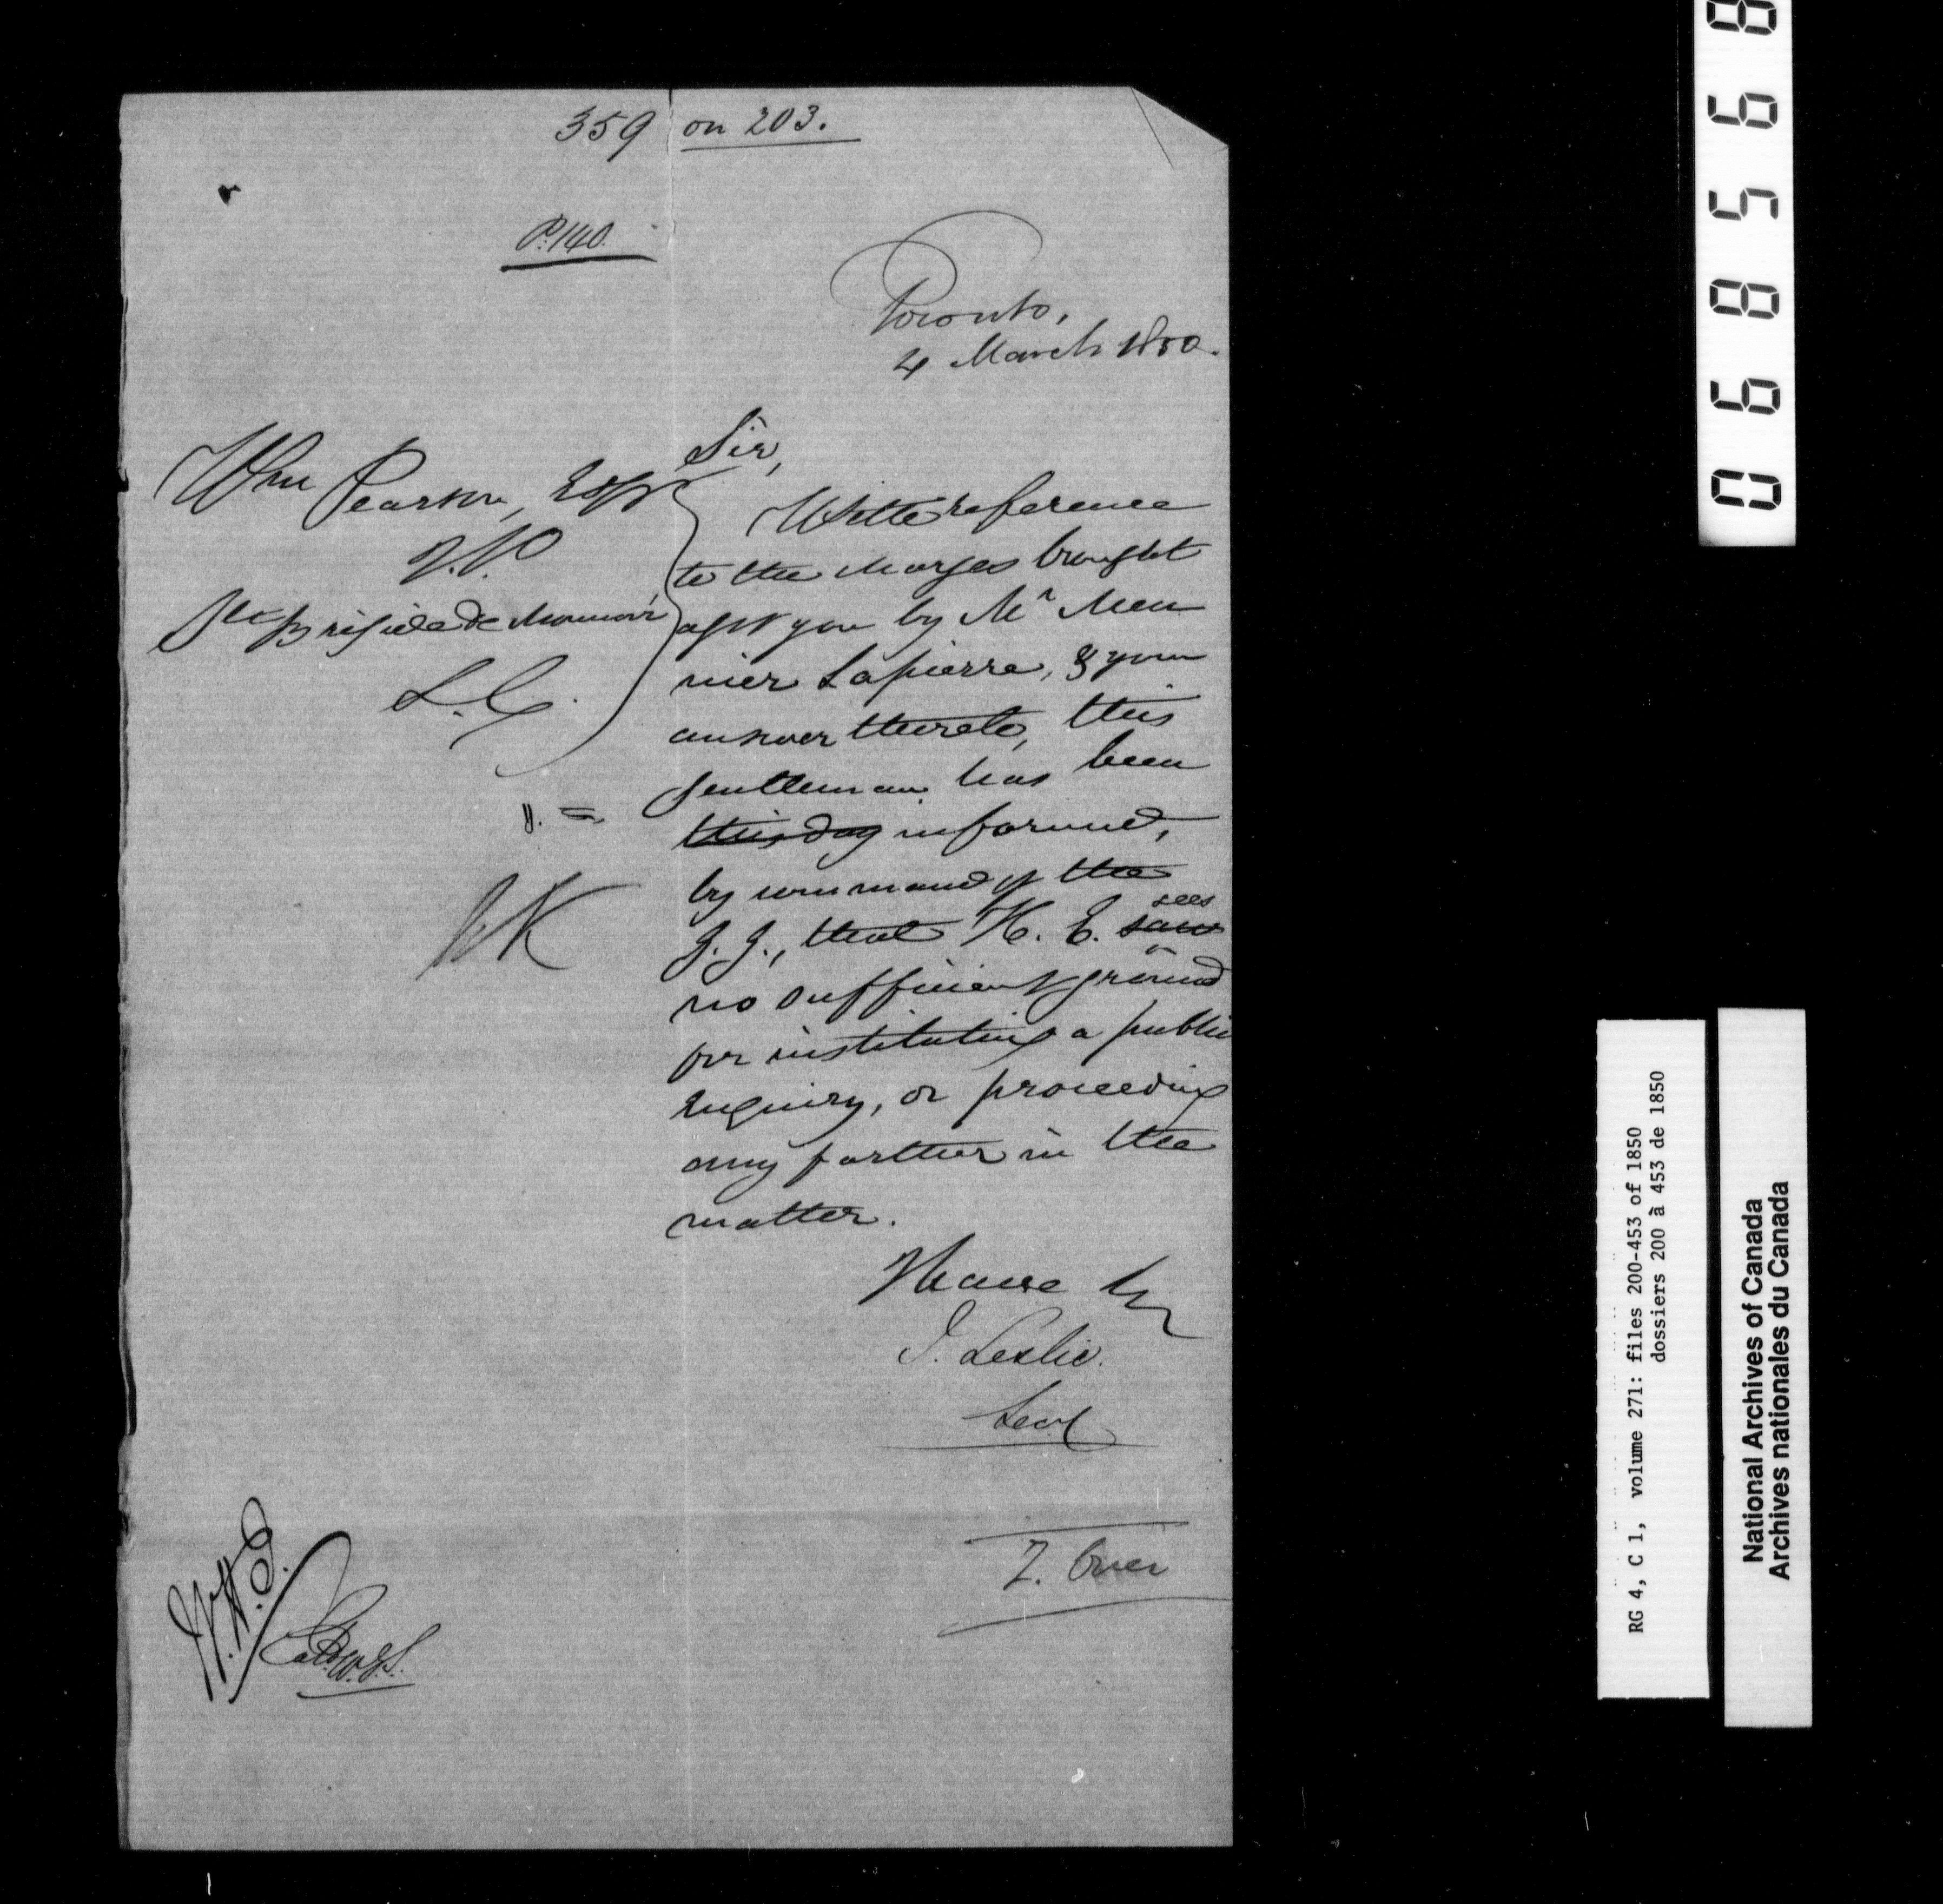 359 on 203.
P. 140.
Toronto,
4 March 1850.
Wm Pearson, Esqr
J.P.
Ste Brigide de Monnoir
L.C.
Sir,
With reference
to the charges brought
agst you by Mr Meu
nier Lapierre, & your
answer thereto, this
gentleman has been
this day informed,
by command of the
G. G., that H. E. saw
sees
no sufficient ground
for instituting a public
enquiry, or proceeding
any further in the
matter.
I have &c
J. Leslie.
Secy
T. Over
068596
RG 4, C 1, volume 271: files 200-453 of 1850
dossiers 200 à 453 de 1850
National Archives of Canada
Archives nationales du Canada